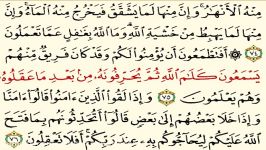 مِنْهُ ٱلْأَنْهَٰرُ وَإِنَّ مِنْهَا لَمَا يَشَّقَّقُ فَيَخْرُجُ مِنْهُ ٱلْمَآءُ وَإِنَّ
مِنْهَا لَمَا يَهْبِطُ مِنْ خَشْيَةِ ٱللَّهِ وَمَا ٱللَّهُ بِغَٰفِلٍ عَمَّا تَعْمَلُونَ
٧٤ أَفَتَطْمَعُونَ أَن يُؤْمِنُوا۟ لَكُمْ وَقَدْ كَانَ فَرِيقٌ مِّنْهُمْ
يَسْمَعُونَ كَلَٰمَ ٱللَّهِ ثُمَّ يُحَرِّفُونَهُۥ مِنۢ بَعْدِ مَا عَقَلُوهُ
وَهُمْ يَعْلَمُونَ ٧٥ وَإِذَا لَقُوا۟ ٱلَّذِينَ ءَامَنُوا۟ قَالُوٓا۟ ءَامَنَّا
وَإِذَا خَلَا بَعْضُهُمْ إِلَىٰ بَعْضٍ قَالُوٓا۟ أَتُحَدِّثُونَهُم بِمَا فَتَحَ
ٱللَّهُ عَلَيْكُمْ لِيُحَآجُّوكُم بِهِۦ عِندَ رَبِّكُمْ أَفَلَا تَعْقِلُونَ ٧٦